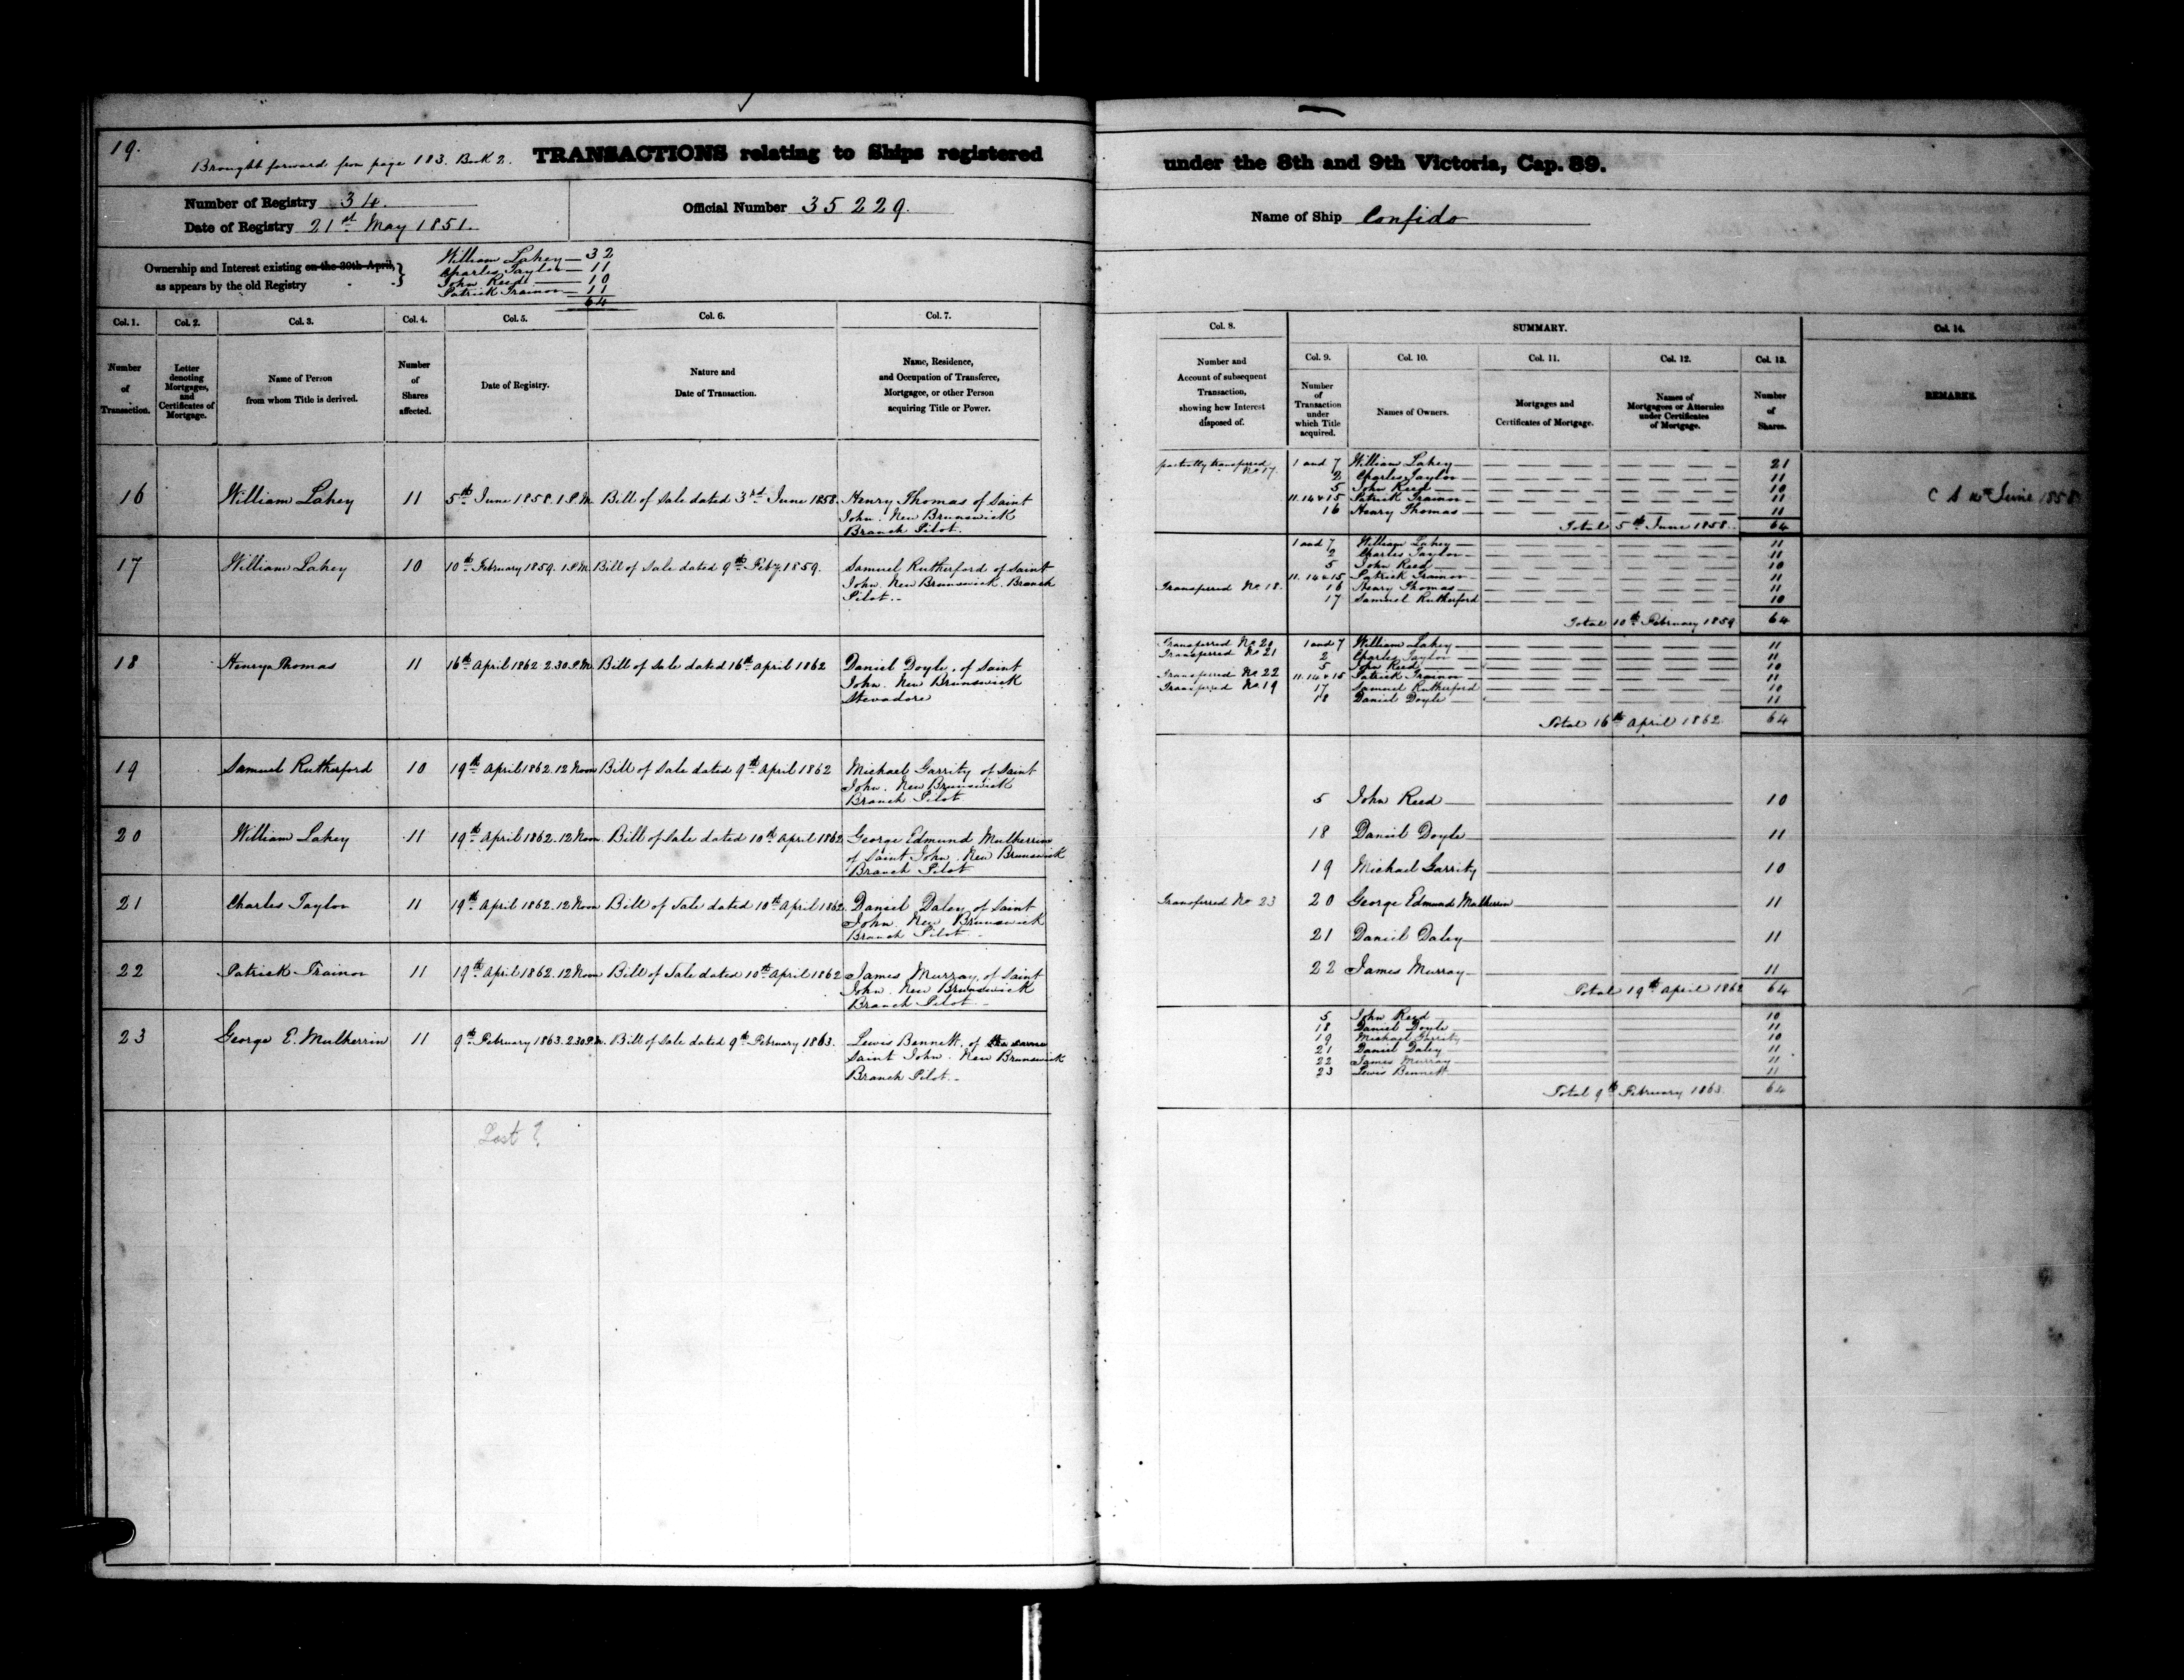 19.
Brought forward from page 183. Book 2.
TRANSACTIONS relating to Ships registered
under the 8th and 9th Victoria, Cap. 89.
Number of Registry 34.
Date of Registry 21st May 1851.
Official Number 35229.
Name of Ship Confido
Ownership and Interest existing on the 30th April,
as appears by the old Registry
William Lahey 32
Charles Taylor 11
John Reed 10
Patrick Trainor 11
64
Col. 1.
Number
of
Transaction.
Col. 2.
Letter
denoting
Mortgages,
and
Certificates of
Mortgage.
Col. 3.
Name of Person
from whom Title is derived.
Col. 4.
Number
of
Shares
affected.
Col. 5.
Date of Registry.
Col. 6.
Nature and
Date of Transaction.
Col. 7.
Name, Residence,
and Occupation of Transferee,
Mortgagee, or other Person
acquiring Title or Power.
Col. 8.
Number and
Account of subsequent
Transaction,
showing how Interest
disposed of.
SUMMARY.
Col. 9.
Number
of
Transaction
under
which Title
acquired.
Col. 10.
Names of Owners.
Col. 11.
Mortgages and
Certificates of Mortgage.
Col. 12.
Names of
Mortgagees or Attornies
under Certificates
of Mortgage.
Col. 13.
Number
of
Shares.
Col. 14.
REMARKS.
16 William Lahey 11 5th June 1858. 1 P.M. Bill of Sale dated 3rd June 1858. Henry Thomas of Saint
John. New Brunswick
Branch Pilot.
17 William Lahey 10 10th February 1859. 1 P.M. Bill of Sale dated 9th Feby. 1859. Samuel Rutherford of Saint
John. New Brunswick. Branch
Pilot.
18 Henry Thomas 11 16th April 1862 2.30 P.M. Bill of Sale dated 16th April 1862 Daniel Doyle, of Saint
John. New Brunswick
Stevadore
19 Samuel Rutherford 10 19th April 1862. 12 Noon Bill of Sale dated 9th April 1862 Michael Garrity of Saint
John. New Brunswick
Branch Pilot.
20 William Lahey 11 19th April 1862. 12 Noon Bill of Sale dated 10th April 1862 George Edmund Mulherrin
of Saint John. New Brunswick
Branch Pilot
21 Charles Taylor 11 19th April 1862. 12 Noon Bill of Sale dated 10th April 1862 Daniel Daley of Saint
John. New Brunswick
Branch Pilot.
22 Patrick Trainor 11 19th April 1862. 12 Noon Bill of Sale dated 10th April 1862 James Murray, of Saint
John. New Brunswick
Branch Pilot
23 George E. Mulherrin 11 9th February 1863. 2.30 P.M. Bill of Sale dated 9th February 1863. Lewis Bennett, of the same
Saint John. New Brunswick
Branch Pilot.
Lost ?
partially transferred 1 and 7 William Lahey 21
No 17.
2 Charles Taylor 11
5 John Reed 10
11. 14 & 15 Patrick Trainor 11
16 Henry Thomas 11
Total 5th June 1858. 64
June 1858
1 and 7 William Lahey 11
2 Charles Taylor 11
5 John Reed 10
11. 14 & 15 Patrick Trainor 11
Transferred No 18. 16 Henry Thomas 11
17 Samuel Rutherford 10
Total 10th February 1859 64
Transferred No 20 1 and 7 William Lahey 11
Transferred No 21 2 Charles Taylor 11
5 John Reed 10
Transferred No 22 11. 14 & 15 Patrick Trainor 11
Transferred No 19 17 Samuel Rutherford 10
18 Daniel Doyle 11
Total 16th April 1862. 64
5 John Reed 10
18 Daniel Doyle 11
19 Michael Garrity 10
Transferred No 23 20 George Edmund Mulherrin 11
21 Daniel Daley 11
22 James Murray 11
Total 19th April 1862 64
5 John Reed 10
18 Daniel Doyle 11
19 Michael Garrity 10
21 Daniel Daley 11
22 James Murray 11
23 Lewis Bennett 11
Total 9th February 1863. 64